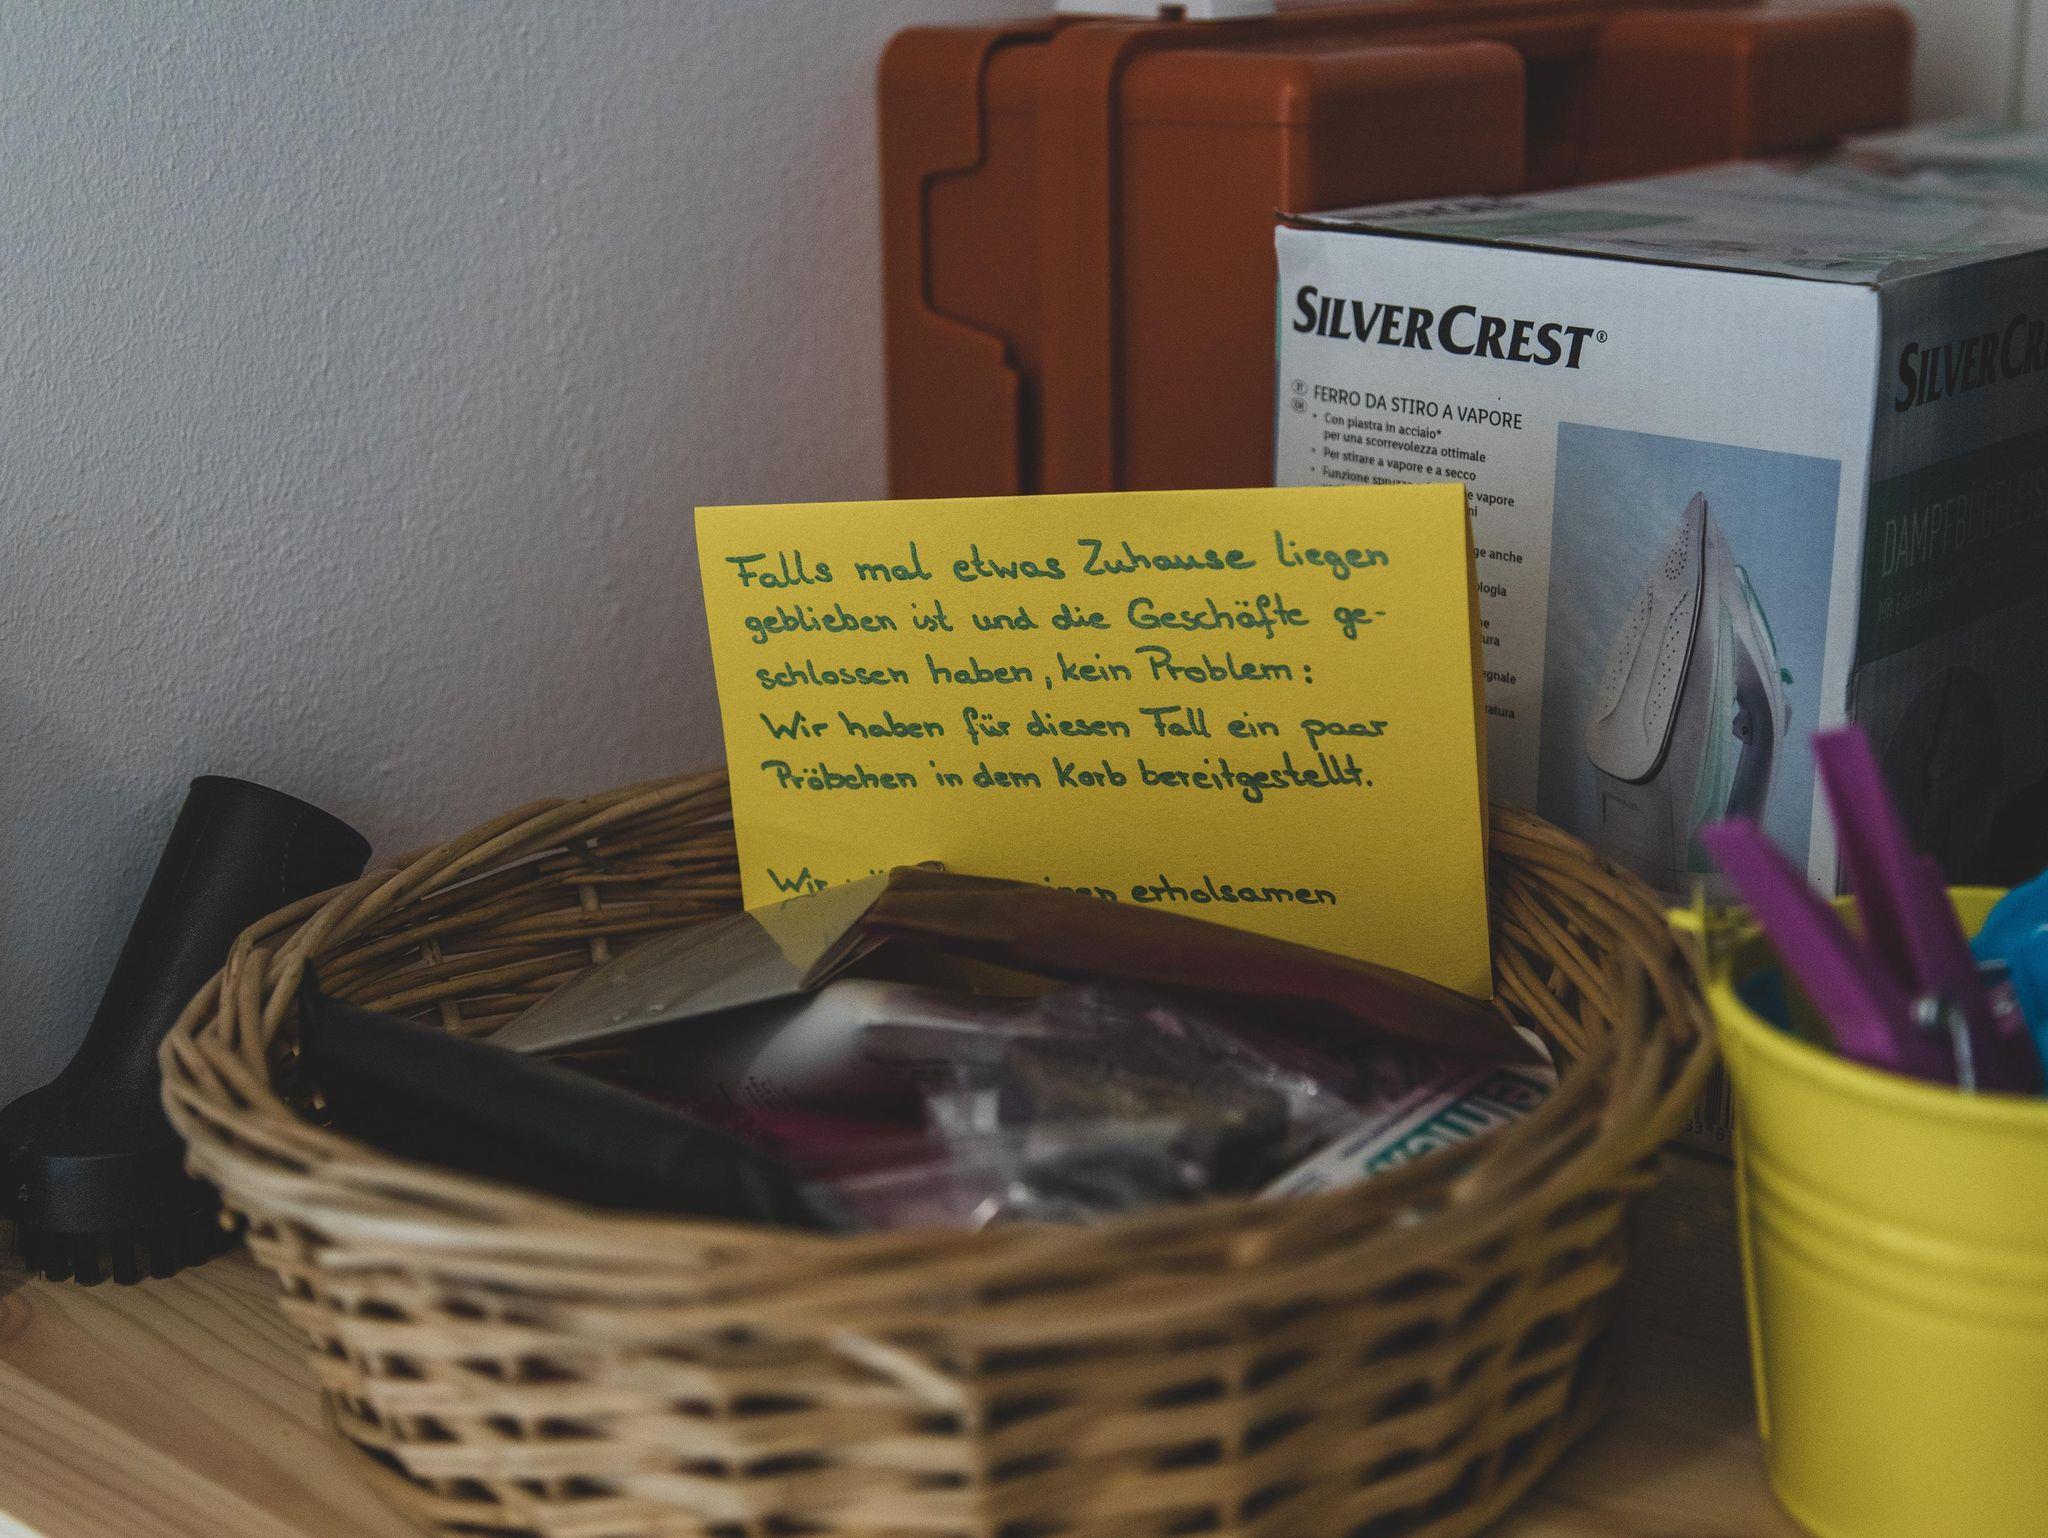 SILVERCREST®
FERRO DA STIRO A VAPORE
Con piastra in acciaio*
per una scorrevolezza ottimale
Per stirare a vapore e a secco
Funzione vapore
ge anche
SILVERCR
DAMPFBÜGLEIS
Falls mal etwas Zuhause liegen
geblieben ist und die Geschäfte ge-
schlossen haben, kein Problem:
Wir haben für diesen Fall ein paar
Pröbchen in dem Korb bereitgestellt.
Wir erholsamen